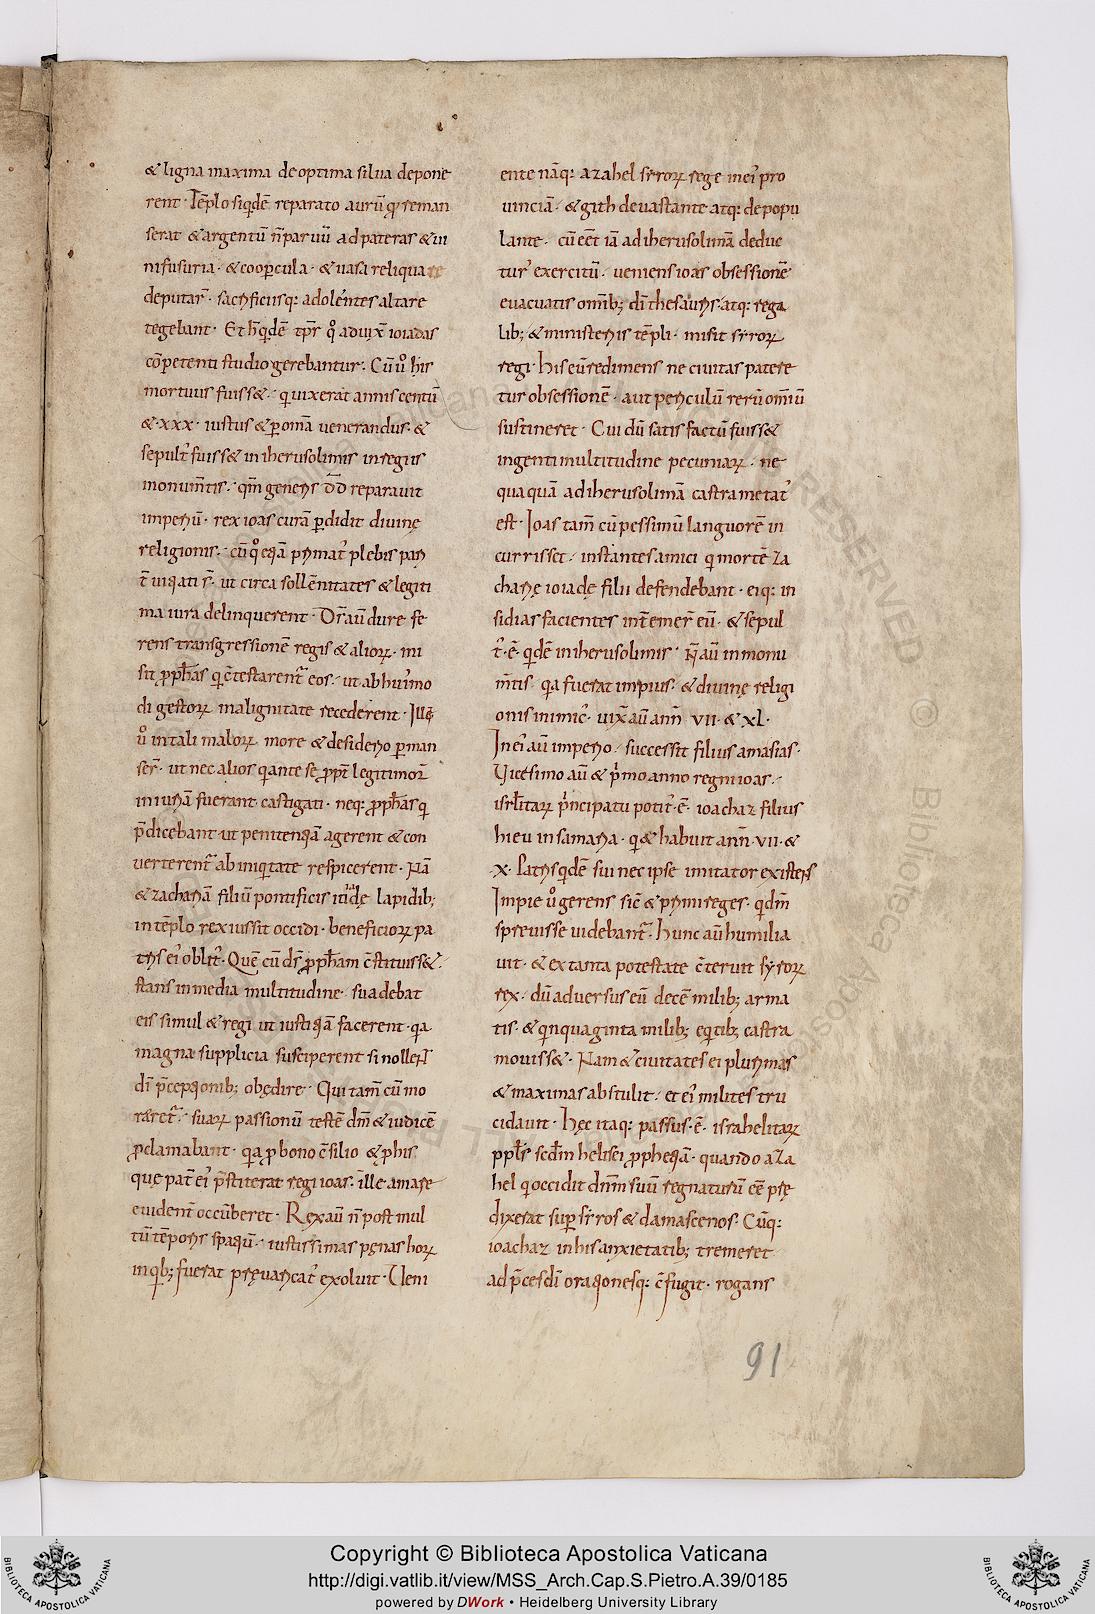 & ligna maxima de optima silua depone
rent· Tẽplo siqdẽ reparato aurũ qđ reman
serat & argentũ ñ paruũ ad pateras & ui
nifusuria· & coopcula· & uasa reliqua
deputar̃· sacrificiisq: adolentes altare
tegebant· Et
cõpetenti studio gerebantur· Cũ ů his
mortuus fuiss&· q uixerat annis centũ
& xxx· iustus & p omã uenerandus· &
sepult' fuiss& in iherusolimis in regiis
monum̃tis· qm̃ generis dd̃ reparauit
imperiũ· rex ioas curã pdidit diuinę
religionis· plebis pari
ut circa sollẽnitates & legiti
ma iura delinquerent· Dr̃ aũ dure fe
rens transgressionẽ regis & alior̨· mi
sit pph̃as q c̃testarent' eos· ut ab hui'mo
di gestor̨ malignitate recederent· Illę
ů in tali malor̨ more & desiderio pman
ser̃· ut nec alios q ante se ppt' legitimor̨
iniuriã fuerant castigati· neq: pph̃as q
p̃dicebant ut penitentiã agerent & con
uerterent' ab iniqtate respicerent· Nã
& zachariã filiũ pontificis lapidib;
in tẽplo rex iussit occidi· beneficior̨ pa
tris ei' oblit'· Quẽ cũ dr̃ pph̃am c̃stituiss&·
stans in media multitudine suadebat
eis simul & regi ut iustitiã facerent· qa
magna supplicia susciperent si noller̃
dĩ p̃ceptionib; obędire· Qui tam̃ cũ mo
reret'· suar̨ passionũ testẽ dm̃ & iudicẽ
pclamabant· qa p bono c̃silio & p his
quę pat' ei' p̃stiterat regi ioas· ille amare
euident' occũberet· Rex aũ ñ post mul
tũ tẽporis spatiũ· iustissimas pęnas hor̨
in qb; fuerat pręuaricat' exoluit· Ueni
ente nãq: azahel siror̨ rege in ei' pro
uinciã· & gith deuastante atq: depopu
lante· cũ eẽt iã ad iherusolimã deduc
tur' exercitũ· ueniens ioas obsessionẽ
euacuatis omib; dĩ thesauris· atq: rega
lib; & ministeriis tẽpli· misit siror̨
regi· his eũ redimens ne ciuitas patere
tur obsessionẽ· aut periculũ rerũ omiũ
sustineret· Cui dũ satis factũ fuiss&
ingenti multitudine pecuniar̨· ne
quaquã ad iherusolimã castra metat'
est· Ioas tam̃ cũ pessimũ languorẽ in
currisset· instantes amici q mortẽ za
charię ioiadę filii defendebant· eiq: in
sidias facientes int'emer̃ eũ· & sepul
t'·ẽ· qdẽ in iherusolimis· ñ aũ in monu
m̃tis· qa fuerat impius· & diuinę religi
onis inimic'· uix̃ aũ anñ VII· & XL·
In ei' aũ imperio· successit filius amasias·
Uicesimo aũ & p'mo anno regni ioas·
isrl̃itar̨ p'ncipatu potit'·ẽ· ioachaz filius
hieu in samaria· q & habuit anñ· VII· &
·X· Patris qdẽ sui nec ipse imitator existens
Impie ů gerens sic̃ & primi reges· qdm̃
spreuisse uidebant'· Hunc aũ humilia
uit· & ex tanta potestate c̃teruit syror̨
rex· dũ aduersus eũ decẽ milib; arma
tis· & qnquaginta milib; eqtib; castra
mouiss&· Nam & ciuitates ei plurimas
& maximas abstulit· et ei' milites tru
cidauit· Hęc itaq: passus·ẽ· israhelitar̨
ppl̃s· scd̃m helisei pphetiã· quando aza
hel q occidit dnm̃ suũ regnaturũ eẽ prę
dixerat sup siros & damascenos· Cũq:
ioachaz in his anxietatib; tremeret
ad p̃ces dĩ orationesq: c̃fugit· rogans
91
Copyright © Biblioteca Apostolica Vaticana
http://digi.vatlib.it/view/MSS_Arch.Cap.S.Pietro.A.39/0185
powered by DWork • Heidelberg University Library
BIBLIOTECA APOSTOLICA VATICANA
BIBLIOTECA APOSTOLICA VATICANA